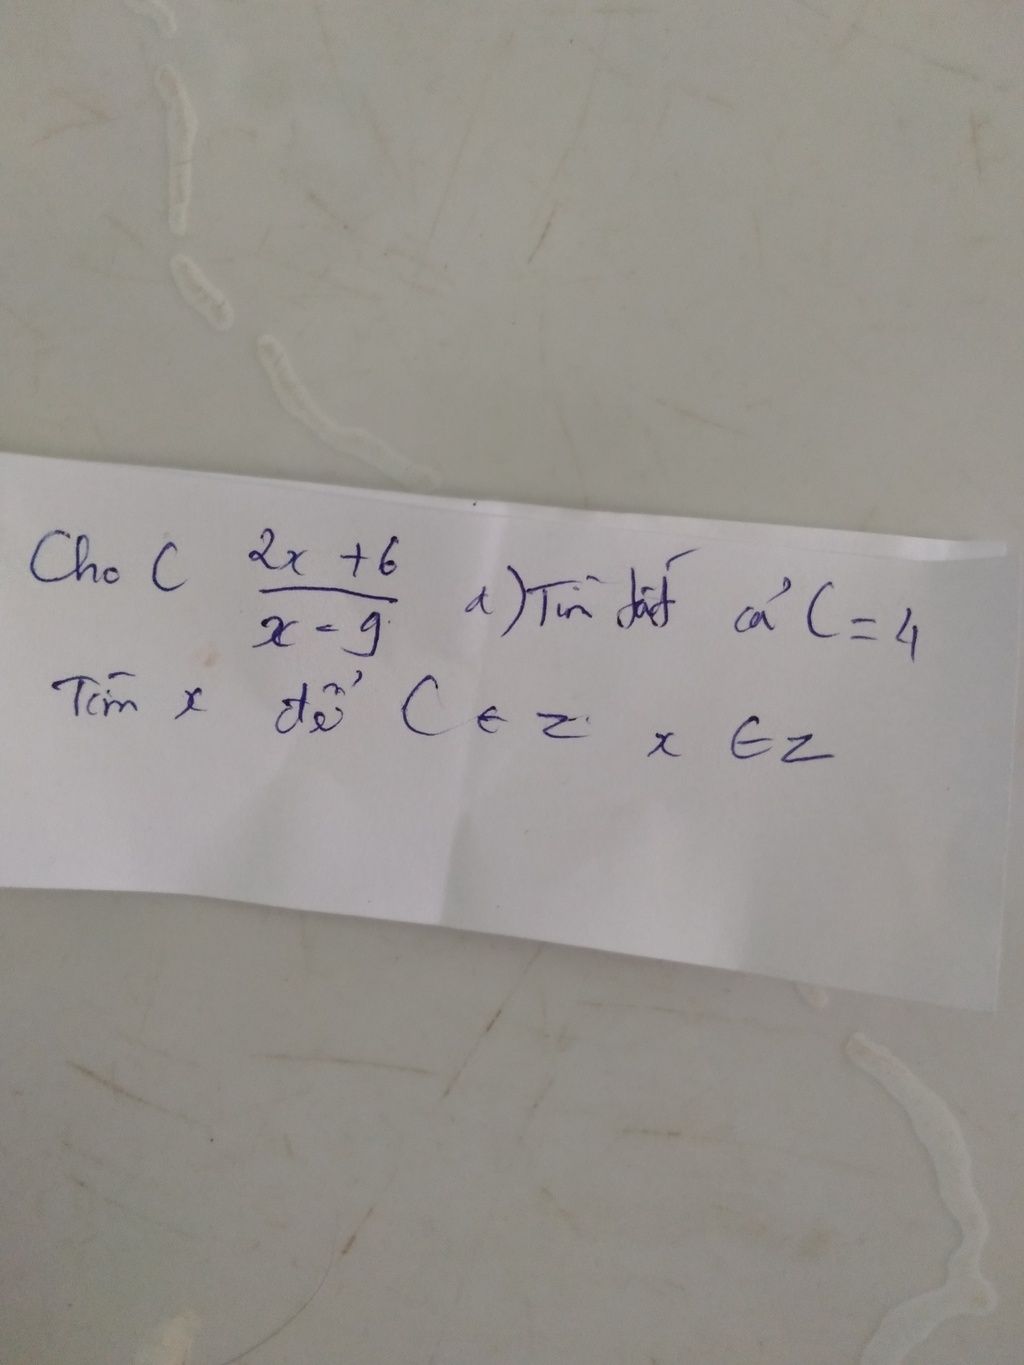 Cho C 2x + 6 / x - 9 a) Tìm tất cả C = 4
Tìm x để C ∈ Z x ∈ Z